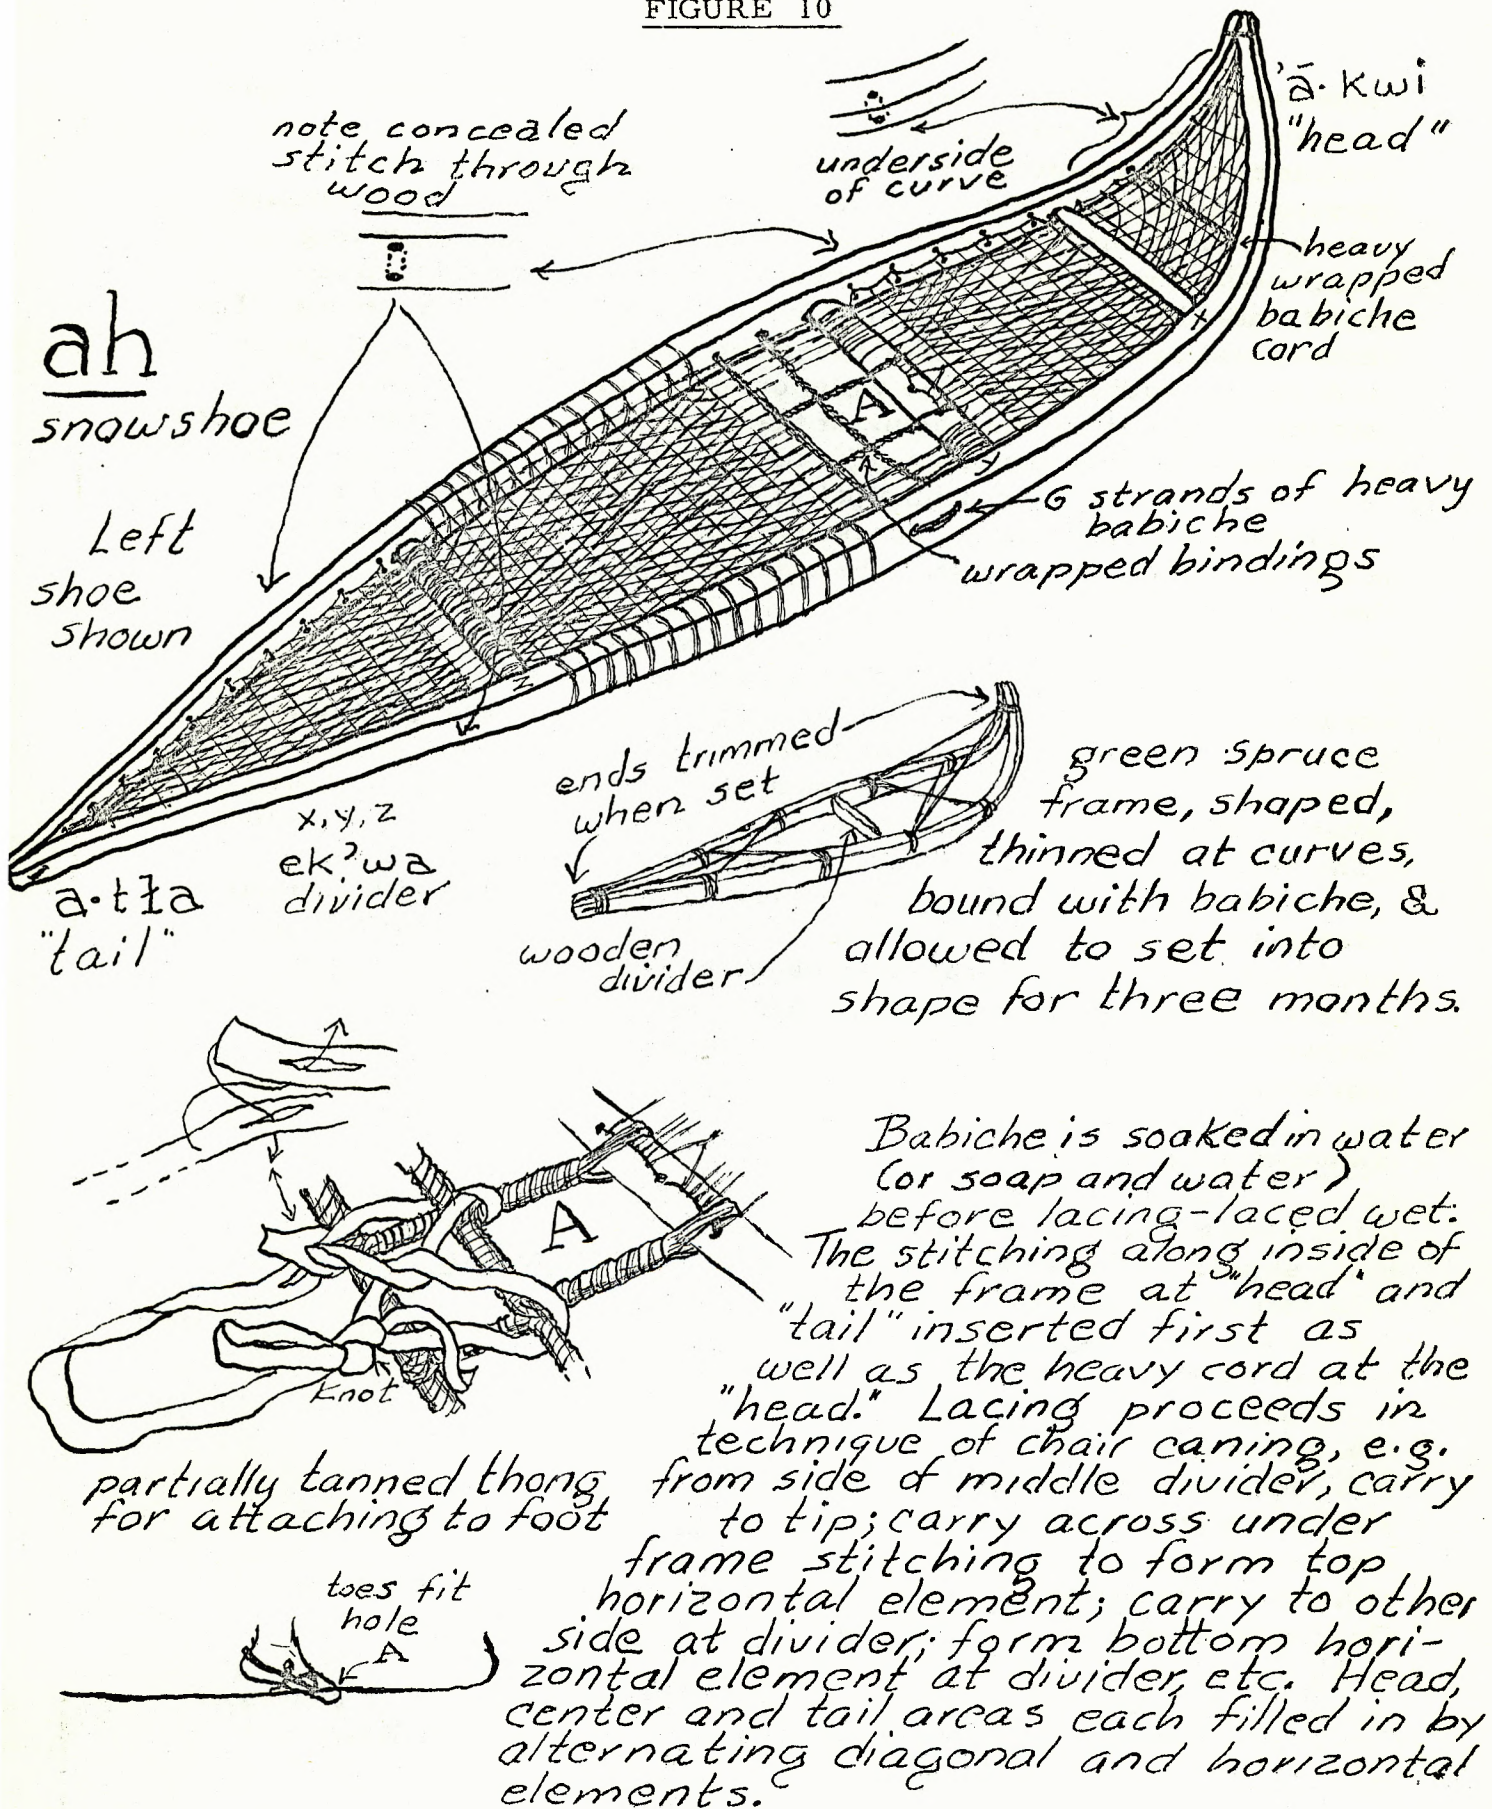 FIGURE 10
'ā· kwi
"head"
note concealed
stitch through
wood
underside
of curve
heavy
wrapped
babiche
cord
ah
snowshoe
A
x
y
z
6 strands of heavy
babiche
wrapped bindings
Left
shoe
shown
ends trimmed
when set
x, y, z
ekʔwa
divider
a·tła
"tail"
wooden
divider
green spruce
frame, shaped,
thinned at curves,
bound with babiche, &
allowed to set into
shape for three months.
A
Knot
partially tanned thong
for attaching to foot
toes fit
hole
A
Babiche is soaked in water
(or soap and water)
before lacing-laced wet.
The stitching along inside of
the frame at "head" and
"tail" inserted first as
well as the heavy cord at the
"head." Lacing proceeds in
technique of chair caning, e.g.
from side of middle divider, carry
to tip; carry across under
frame stitching to form top
horizontal element; carry to other
side at divider; form bottom hori-
zontal element at divider, etc. Head,
center and tail areas each filled in by
alternating diagonal and horizontal
elements.